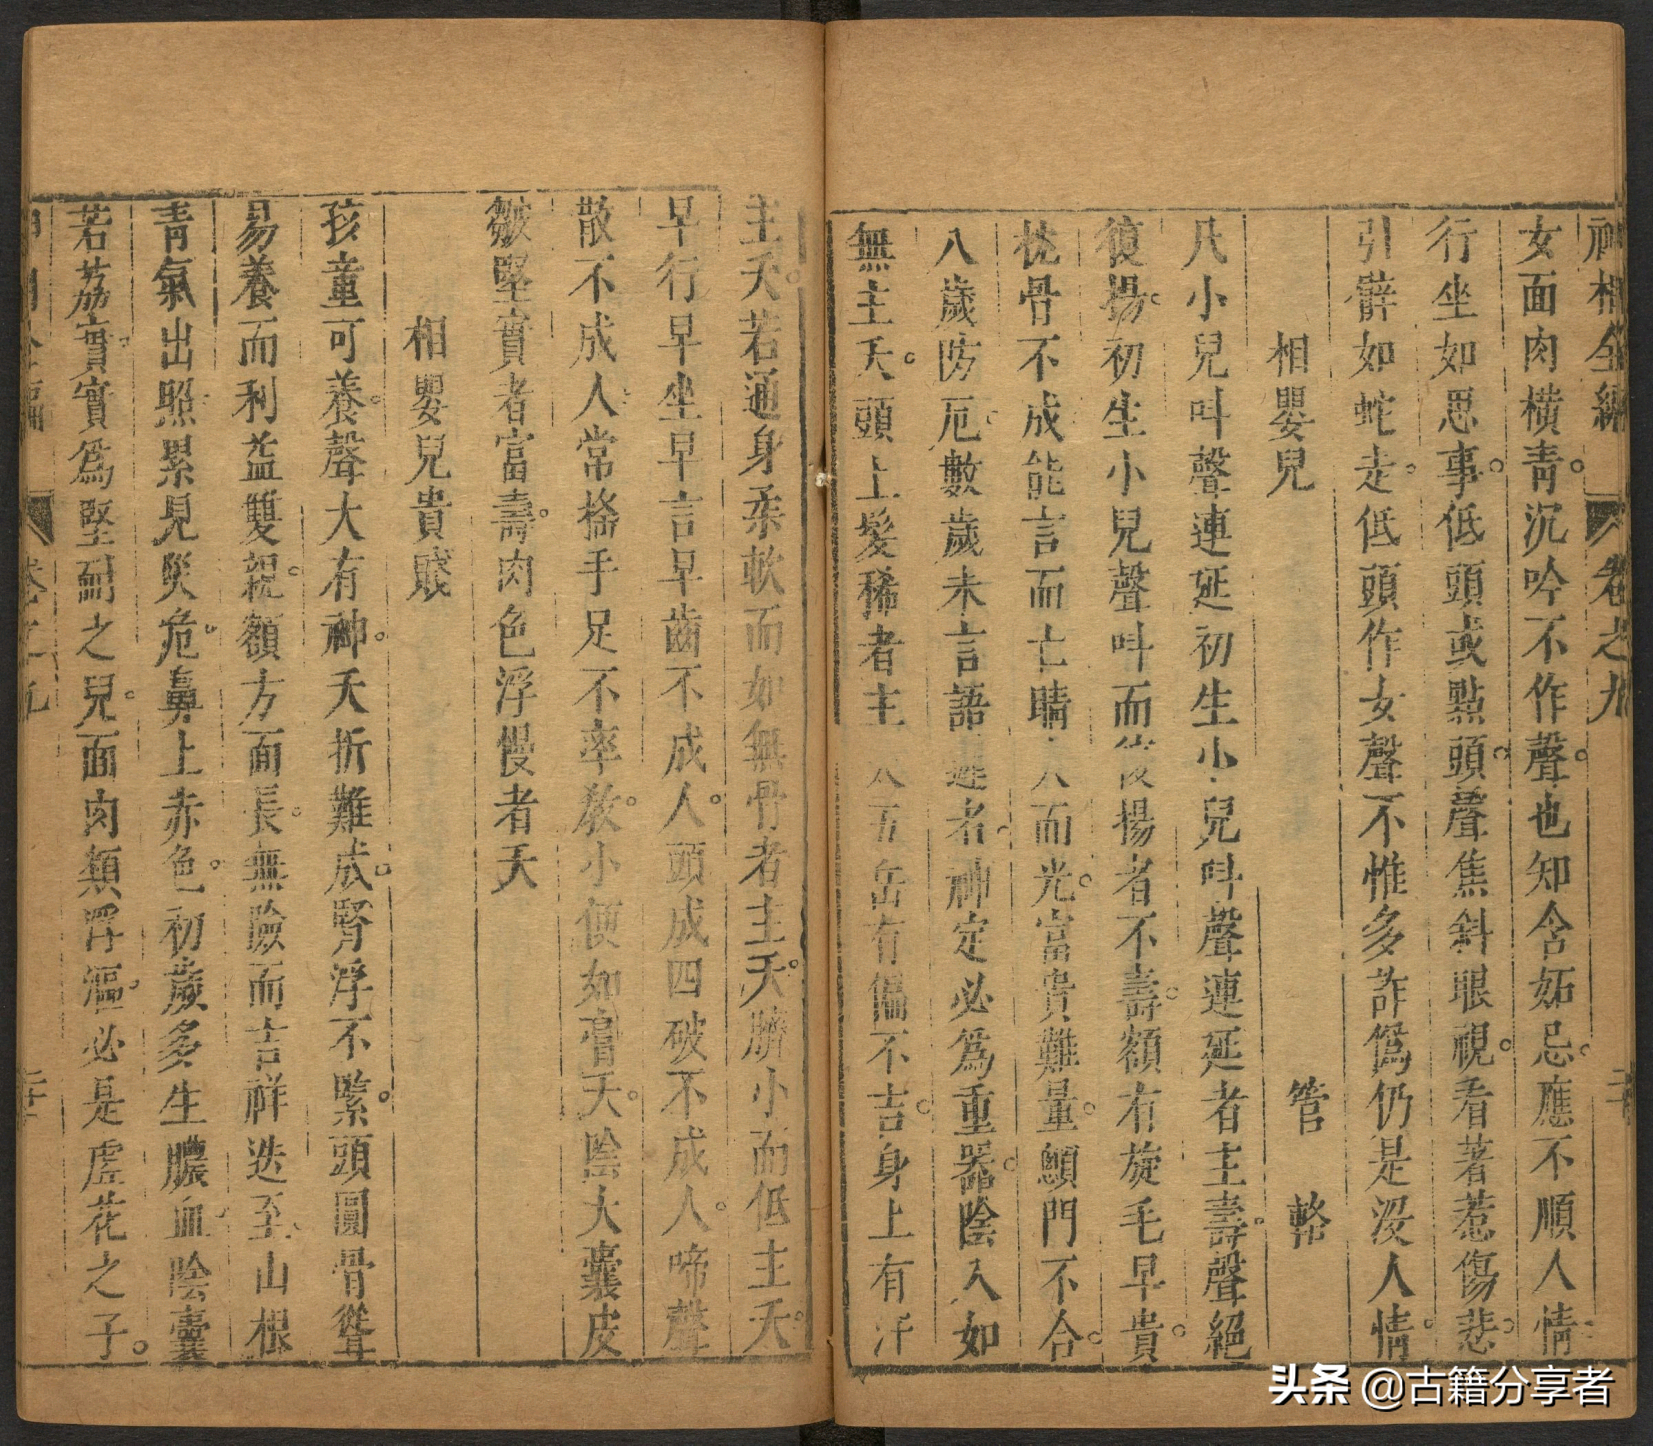 神相全編 卷之九
女面肉橫青。沉吟不作聲。也知含妬忌。應不順人情
行坐如思事。低頭或點頭。聲焦斜眼視。看著惹傷悲。
引髒如蛇走。低頭作女聲不惟多詐僞仍是沒人情。
相嬰兒
管輅
凡小兒叫聲連延初生小兒叫聲連延者主壽。聲絕
復揚。初生小兒聲叫而後揚者不壽。額有旋毛早貴。
枕骨不成能言而亡睛而光。富貴難量。顖門不合。
八歲防厄。數歲未言語者。神定必爲重器。陰入如
無主夭。頭上髮稀者主五岳有偏不吉。身上有汗
主夭。若通身柔軟而如無骨者主夭。臍小而低主夭。
早行早坐早言早齒不成人。頭成四破不成人。啼聲
散不成人。常搖手足不率教。小便如膏夭。陰大囊皮
皺堅實者富壽。肉色浮慢者夭
相嬰兒貴賤
孩童可養。聲大有神。夭折難成。腎浮不緊。頭圓骨聳
易養而利益雙親。額方面長。無險而吉祥迭至。山根
青氣出照。累見災危。鼻上赤色。初歲多生膿血。陰囊
若荔實。實爲堅耐之兒。面肉類浮漚。必是虛花之子。
卷之九